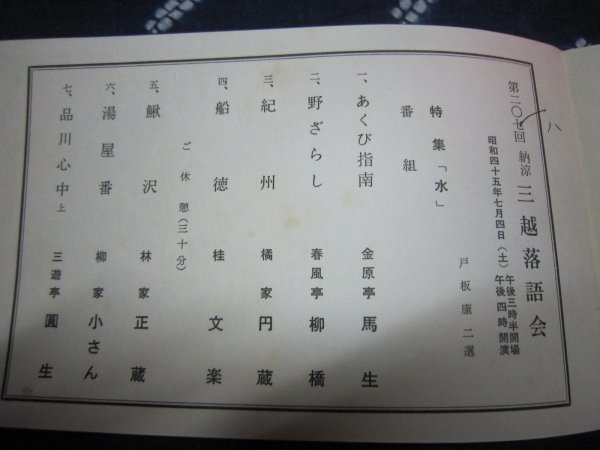 第二〇七回 納涼 三越落語会
八
昭和四十五年七月四日(土) 午後三時半開場
午後四時開演
戸板康二選
特集「水」
番組
一、あくび指南 金原亭 馬生
二、野ざらし 春風亭 柳橋
三、紀州 橘家 円蔵
四、船徳 桂 文楽
ご休憩(三十分)
五、鰍沢 林家 正蔵
六、湯屋番 柳家 小さん
七、品川心中 上 三遊亭 圓生